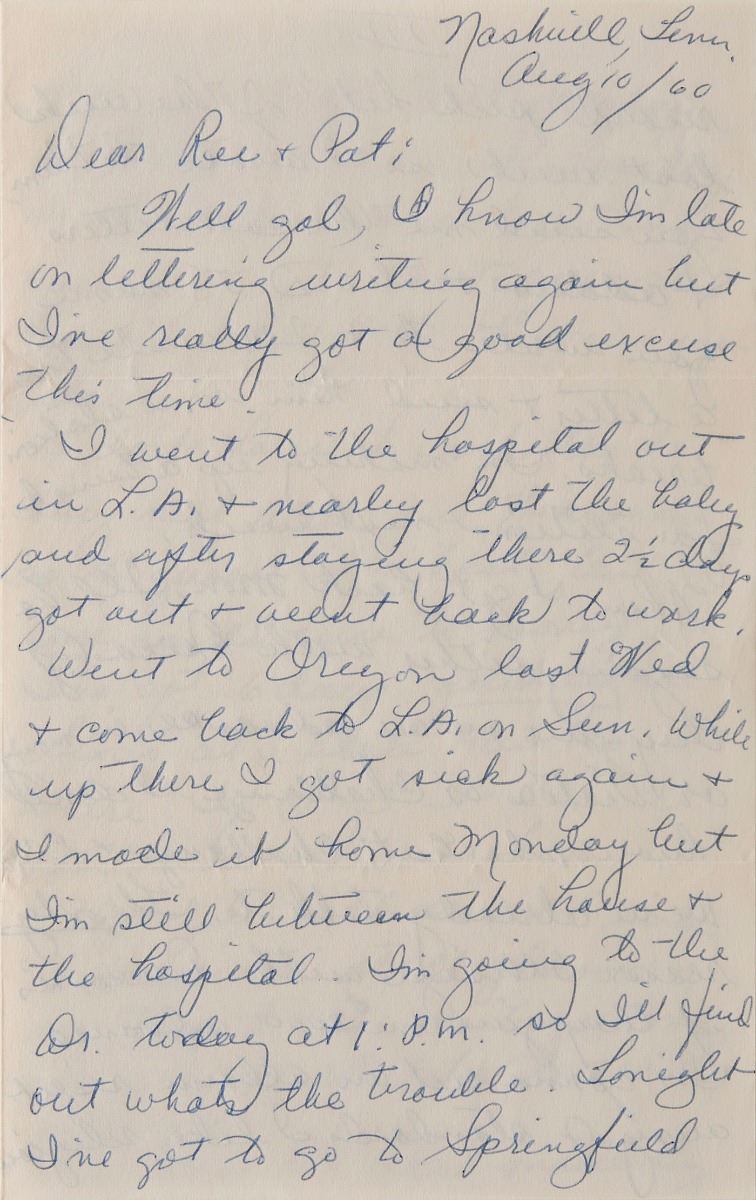 Nashville, Tenn.
Aug 10/60
Dear Ree + Pat;
Well gal, I know I'm late
on lettering writing again but
I've really got a good excuse
this time.
I went to the hospital out
in L.A. + nearley lost the baby
and after staying there 2½ days
got out + went back to work.
Went to Oregon last Wed
+ come back to L.A. on Sun. While
up there I got sick again +
I made it home Monday but
I'm still between the house +
the hospital. I'm going to the
Dr. today at 1: P.M. so I'll find
out whats the trouble. Tonight
I've got to go to Springfield